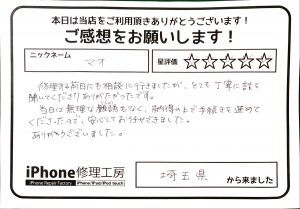 本日は当店をご利用頂きありがとうございます!
ご感想をお願いします!
ニックネーム
マオ
星評価 ☆☆☆☆☆
修理する前日にも相談に行きましたが、とても丁寧に話を
聞いてくださりありがたかったです。
当日は無理な勧誘もなく、納得の上で手続きを進めて
くださったので、安心してお任せできました。
ありがとうございました。
iPhone修理工房
iPhone Repair Factory
iPhone/iPad/iPod touch
埼玉県
から来ました